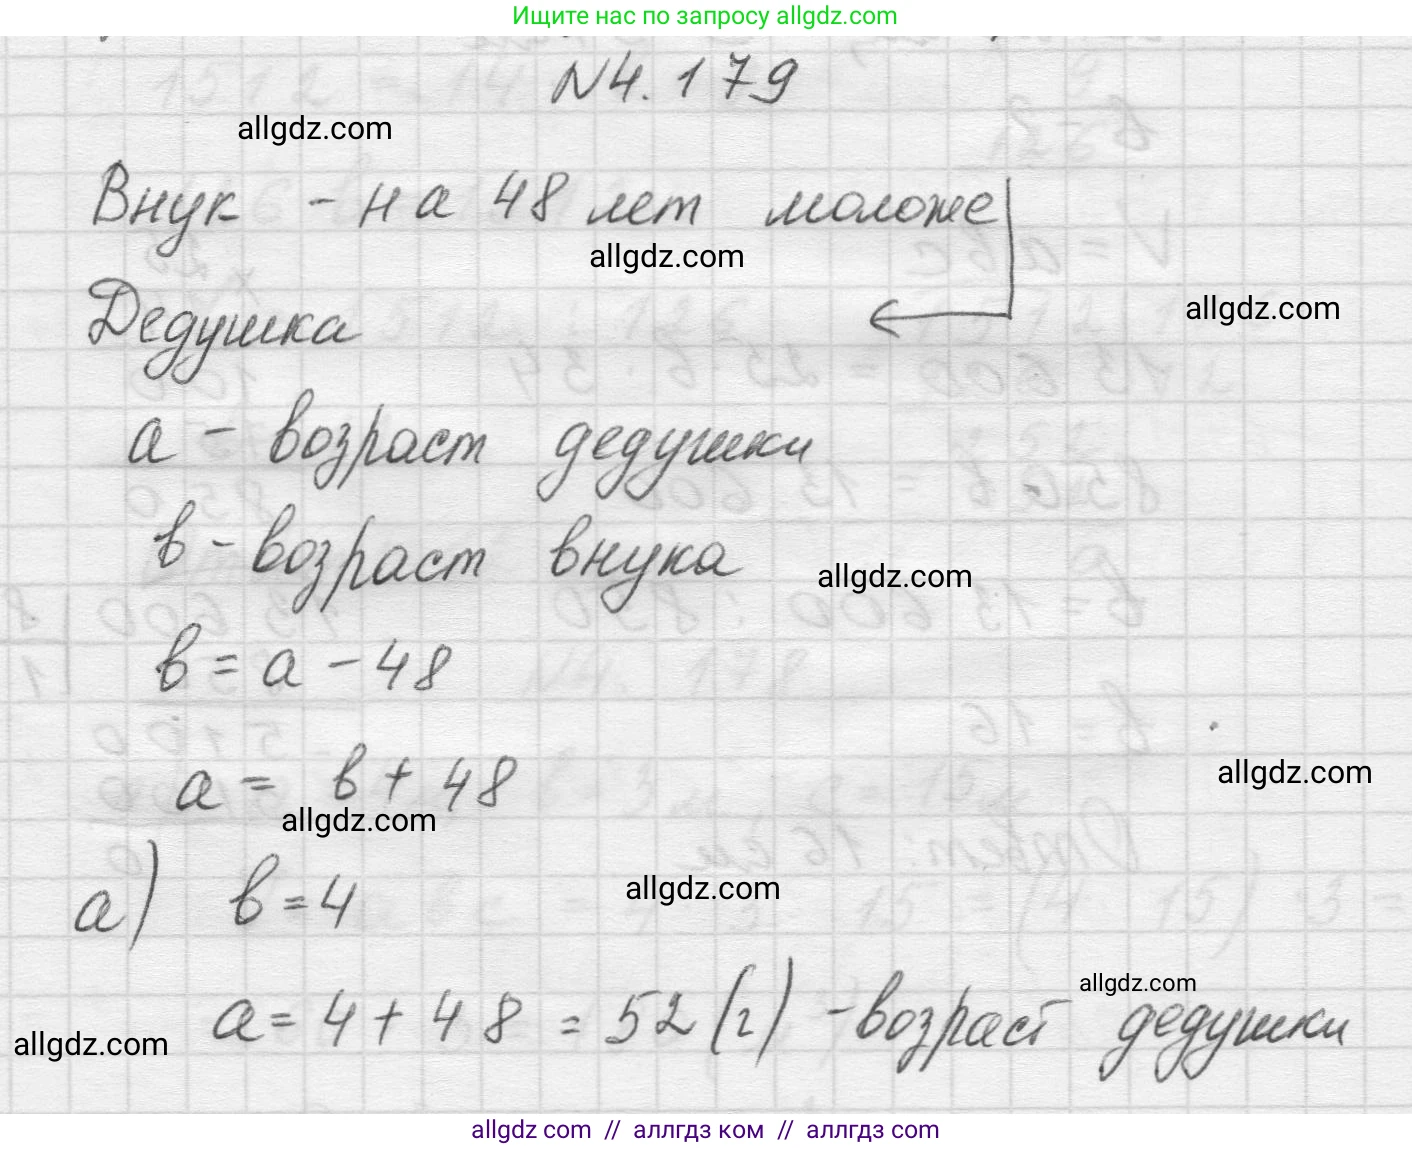 Ищите нас по запросу allgdz.com
N4.179
allgdz.com
Внук - на 48 лет моложе
allgdz.com
allgdz.com
Дедушка
a - возраст дедушки
в - возраст внука
allgdz.com
в = a - 48
allgdz.com
a = в + 48
allgdz.com
allgdz.com
а) в = 4
allgdz.com
a = 4 + 48 = 52 (г) - возраст дедушки
allgdz.com
allgdz com // аллгдз ком // аллгдз com